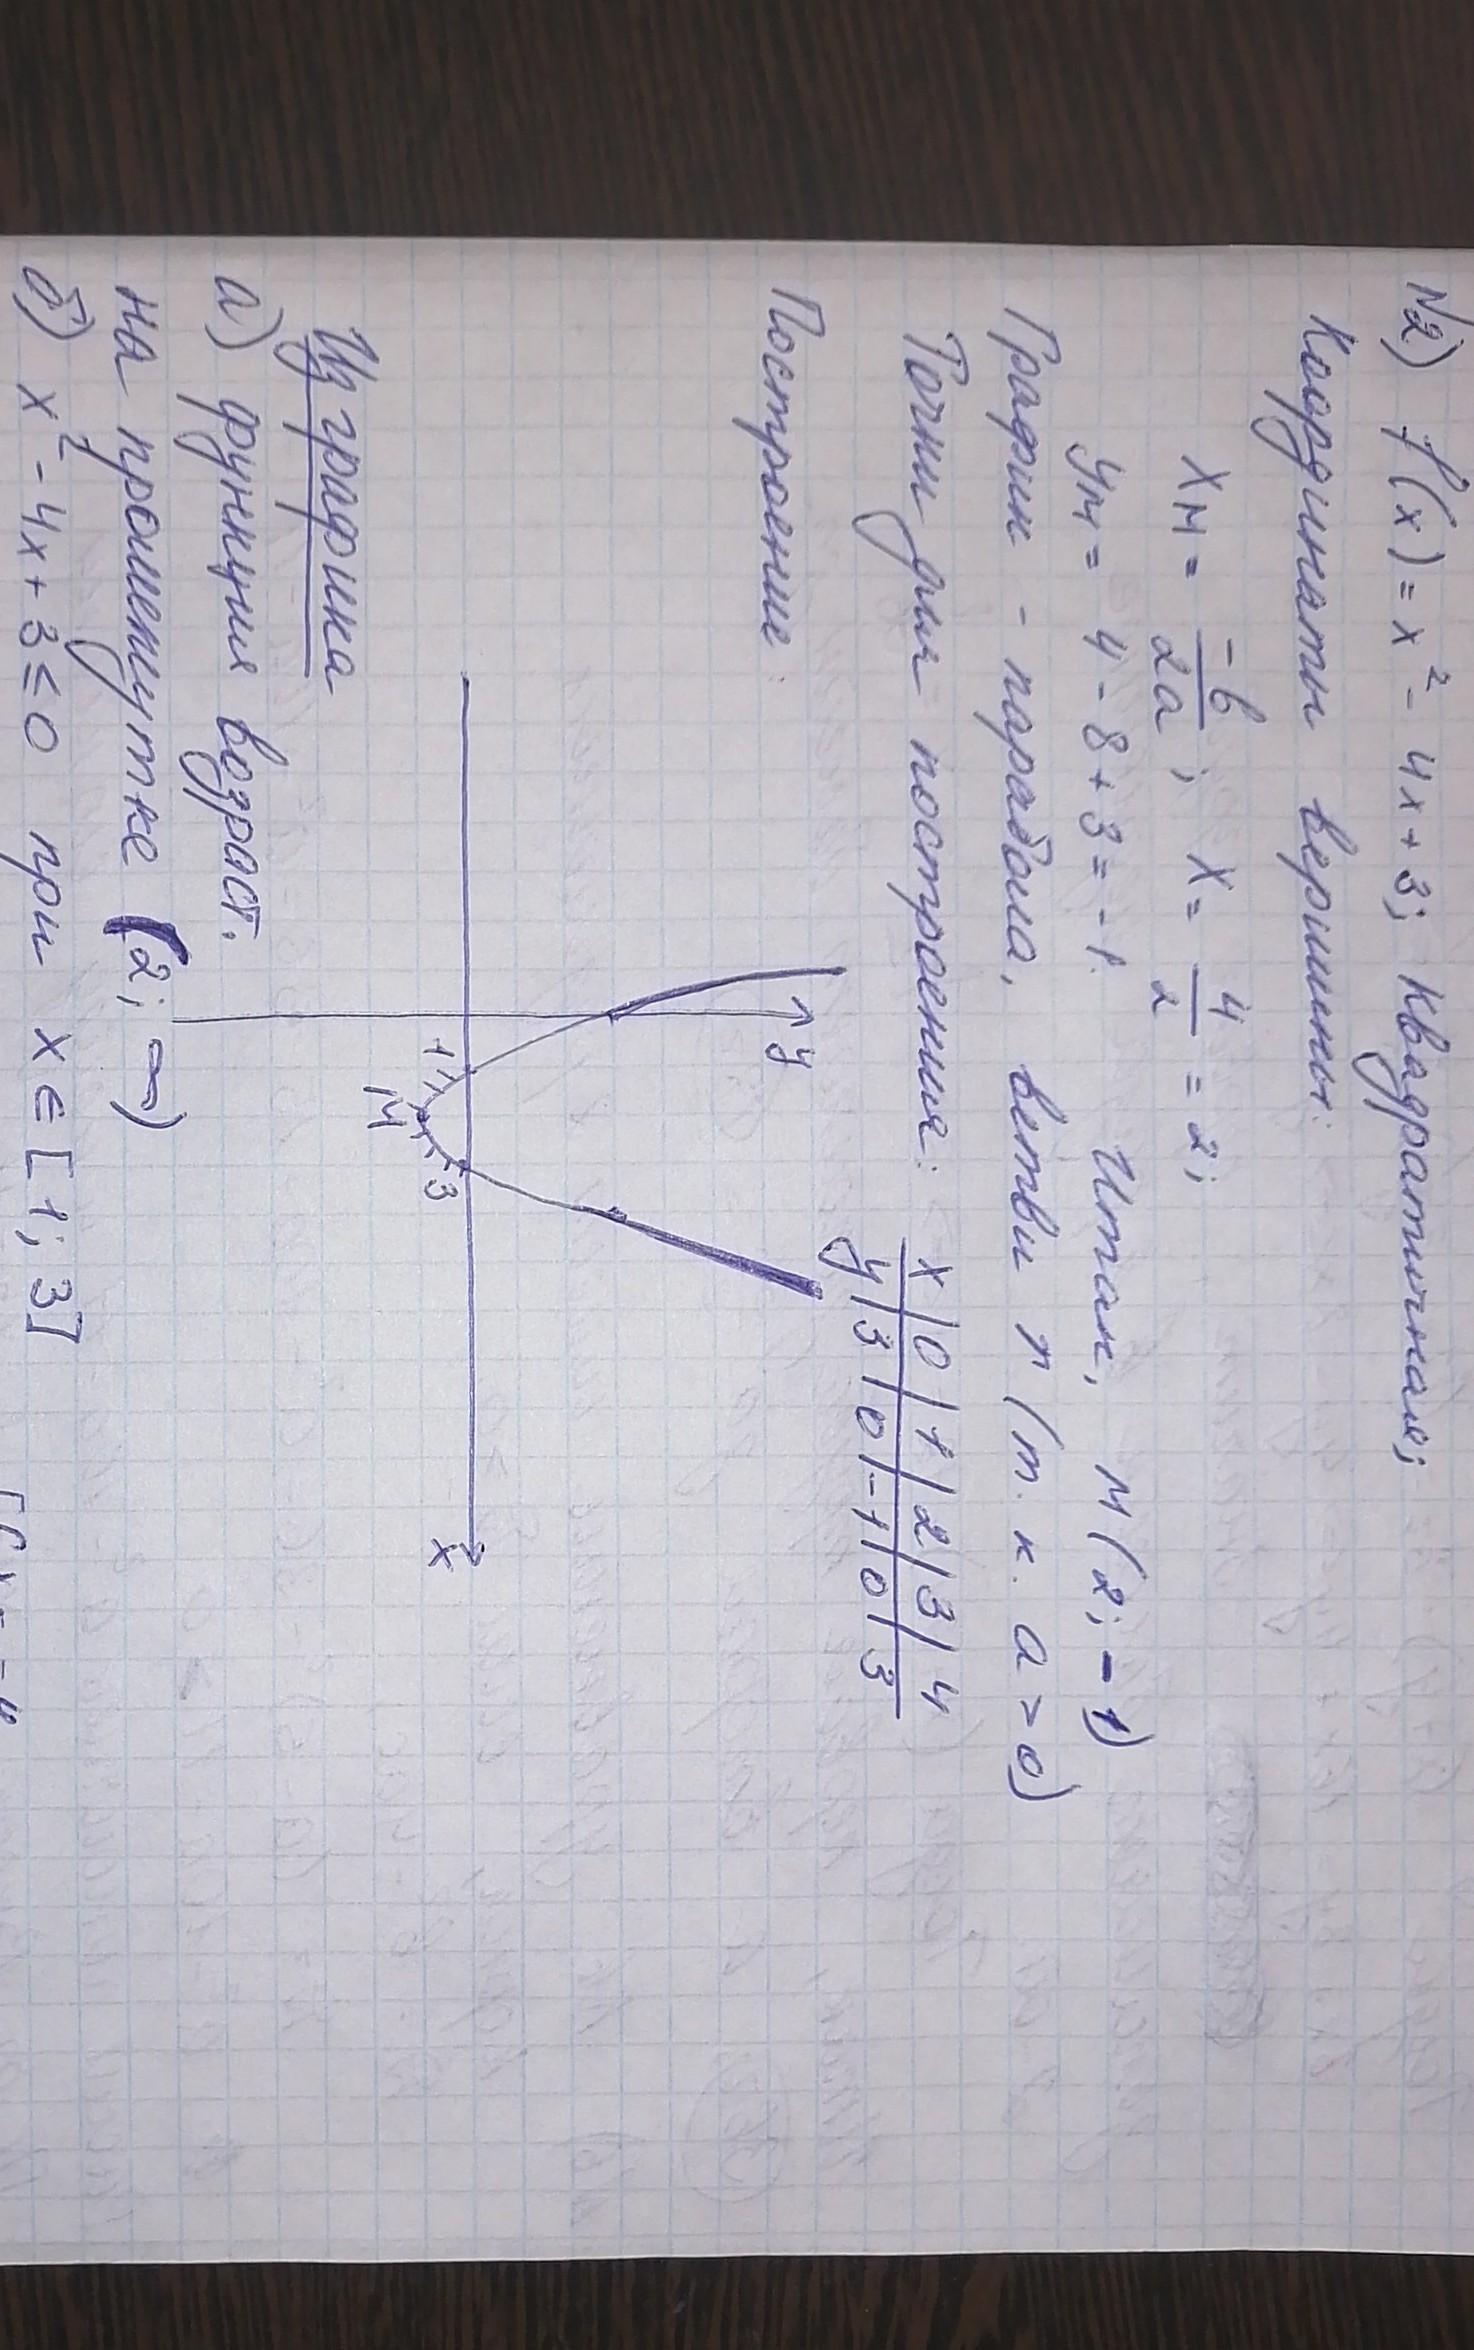 №2) f(x) = x² - 4x + 3; Квадратичная;
Координаты вершины:
xм = -b/2a; x = 4/2 = 2;
yм = 4 - 8 + 3 = -1. Итак, М(2; -1)
График - парабола, ветви ↑ (т.к. a > 0)
Точки для построения:
x | 0 | 1 | 2 | 3 | 4
y | 3 | 0 | -1 | 0 | 3
Построение:
y
1 3 x
М
Из графика
а) функция возраст.
на промежутке (2; ∞)
б) x² - 4x + 3 ≤ 0 при x ∈ [1; 3]